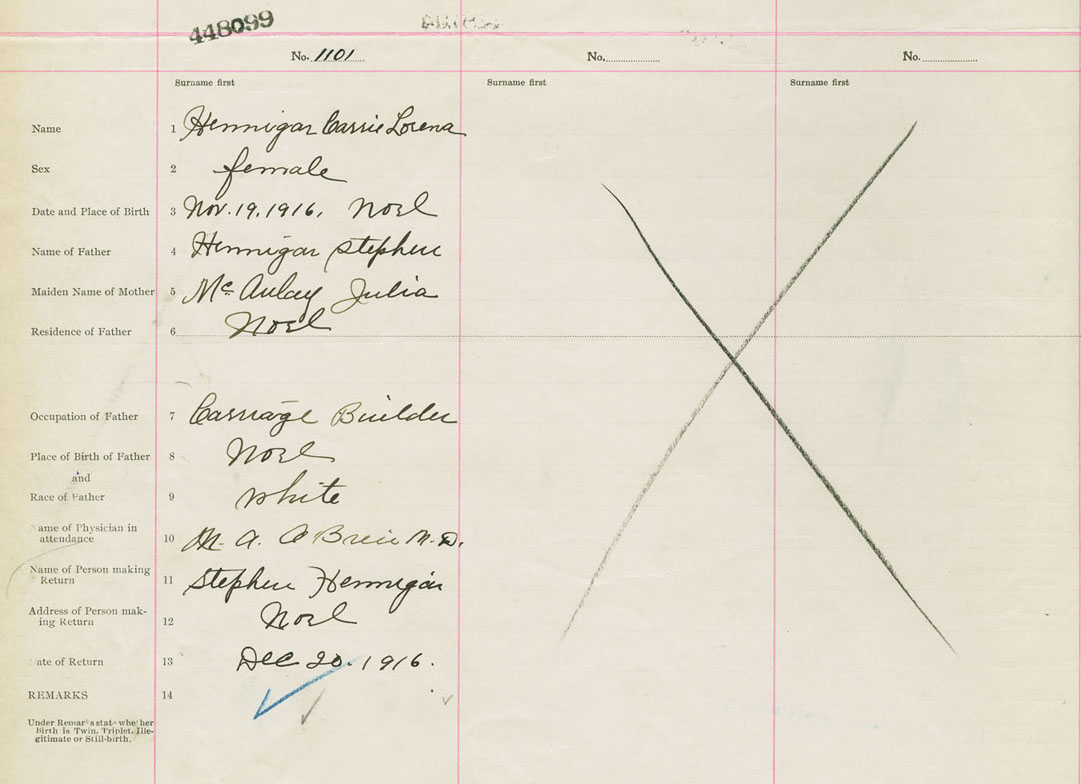 448099
No. 1101 No. No.
Surname first Surname first Surname first
Name 1 Hennigar Carrie Lorena
Sex 2 female
Date and Place of Birth 3 Nov. 19. 1916. Noel
Name of Father 4 Hennigar Stephen
Maiden Name of Mother 5 Mc Aulay Julia
Residence of Father 6 Noel
Occupation of Father 7 Carriage Builder
Place of Birth of Father 8 Noel
and
Race of Father 9 white
Name of Physician in
attendance 10 M. A. O Brien M. D.
Name of Person making
Return 11 Stephen Hennigar
Address of Person mak-
ing Return 12 Noel
Date of Return 13 Dec 20. 1916.
REMARKS 14
Under Remarks state whether
Birth is Twin, Triplet, Ille-
gitimate or Still-birth.